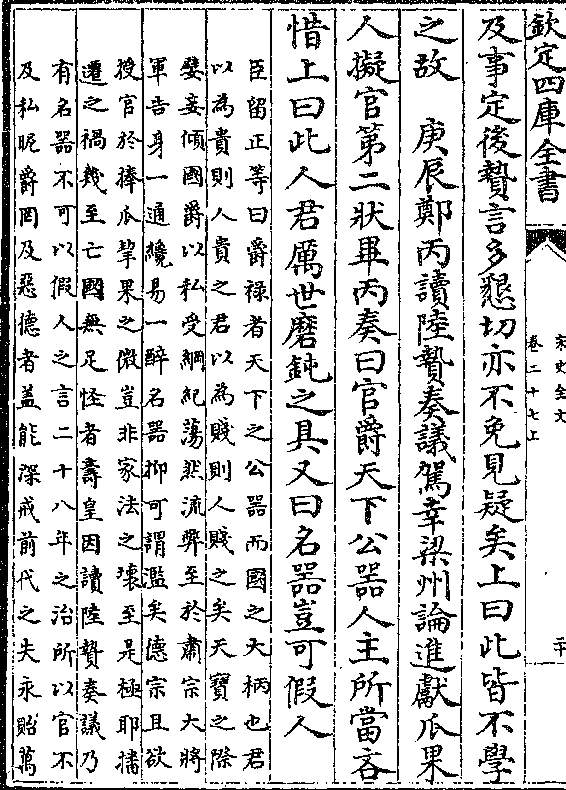 欽定四庫全書
宋史全文
卷二十七上
二十
及事定後贄言多懇切亦不免見疑矣上曰此皆不學
之故　庚辰鄭丙讀陸贄奏議駕幸梁州論進獻瓜果
人擬官第二狀畢丙奏曰官爵天下公器人主所當吝
惜上曰此人君厲世磨鈍之具又曰名器豈可假人
臣留正等曰爵禄者天下之公器而國之大柄也君
以為貴則人貴之君以為賤則人賤之矣天寳之際
嬖妾傾國爵以私受綱紀蕩然流弊至於肅宗大將
軍告身一通纔易一醉名器抑可謂濫矣德宗且欲
授官於捧瓜挈果之微豈非家法之壊至是極耶播
遷之禍幾至亡國無足怪者壽皇因讀陸贄奏議乃
有名器不可以假人之言二十八年之治所以官不
及私昵爵罔及惡德者盖能深戒前代之失永貽萬